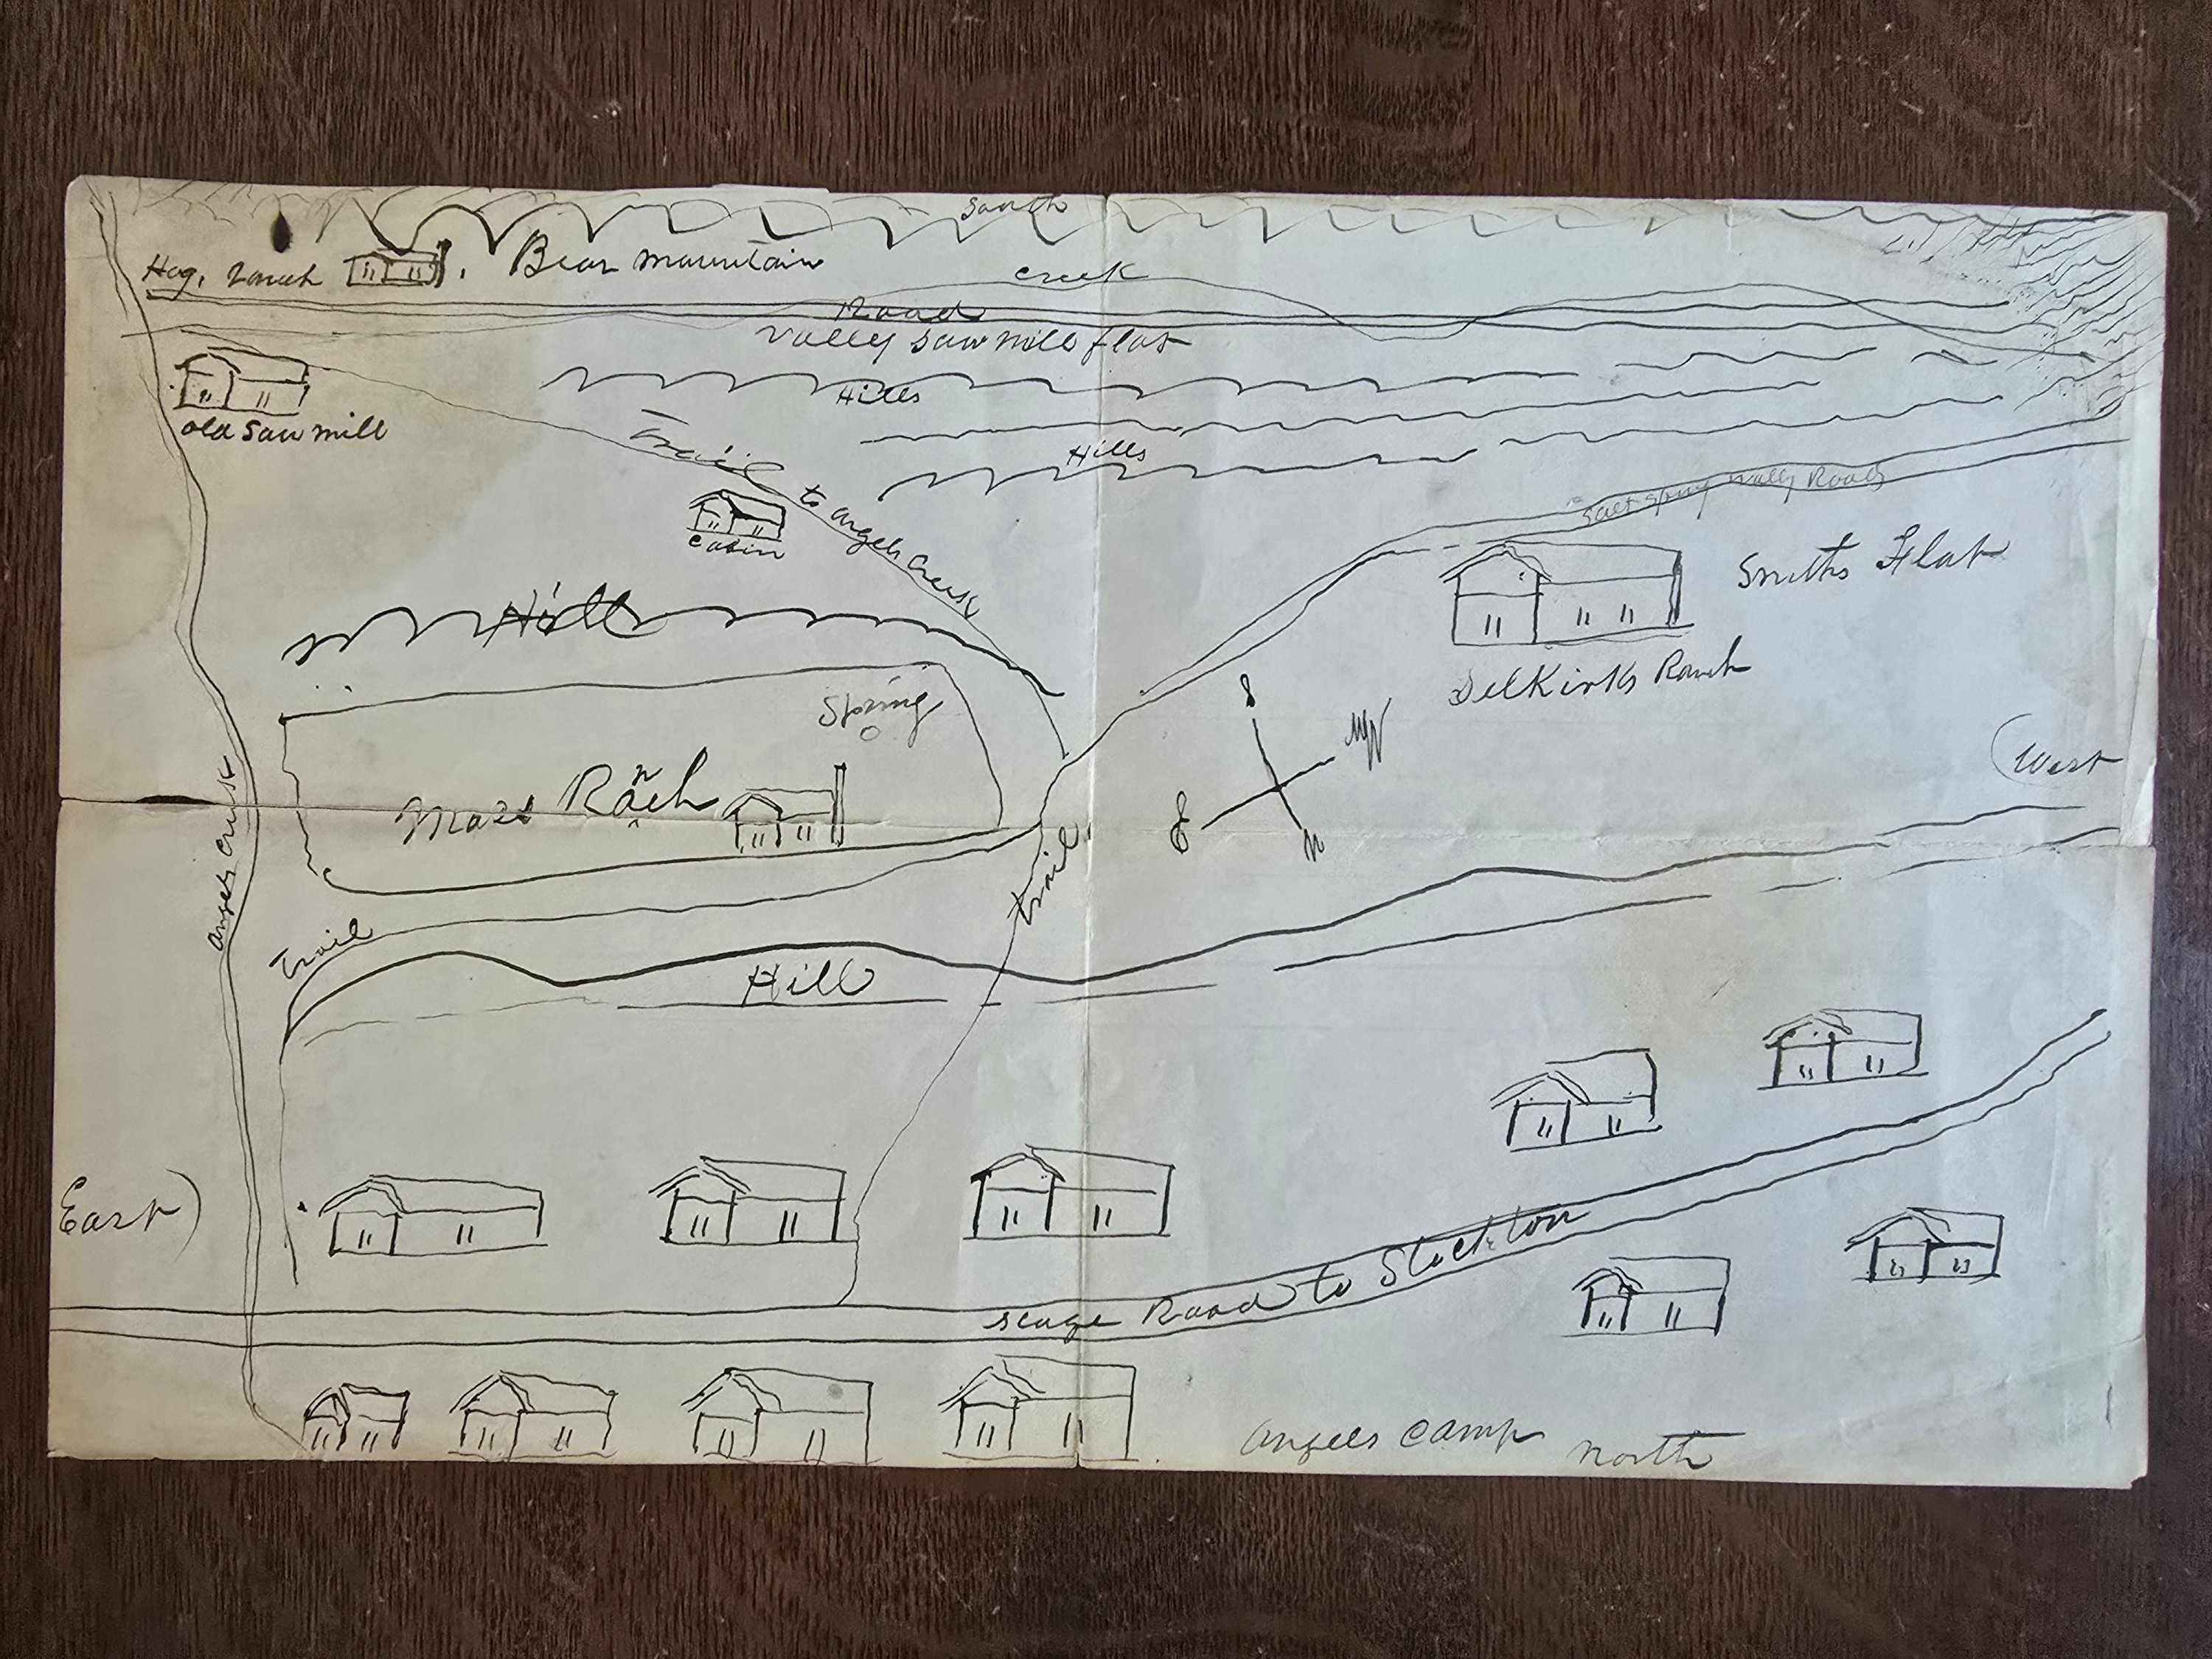 South
Hog, Ranch
Bear mountain
creek
Road
Valley Sawmill flat
Hills
old Saw mill
Hills
Trail to angels Creek
Salt Spring Vally Road
cabin
Smiths Flat
Hill
Selkirks Ranch
S
Spring
W
(West
Rach
n
E
N
angels Creek
trail
Trail
Hill
East)
stage Road to Stockton
angels camp
north